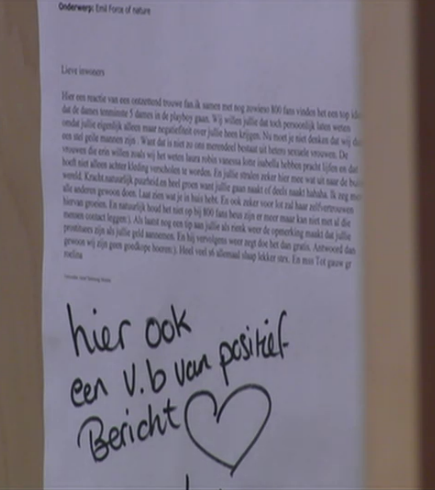 Onderwerp: Emil Force of nature
Lieve inwoners
Hier een reactie van een ontzettend trouwe fan.ik samen met nog zowieso 800 fans vinden het een top idee
dat de dames tenminste 5 dames in de playboy gaan. Wij willen jullie dat toch persoonlijk laten weten
omdat jullie eigenlijk alleen maar negatiefiteit over jullie heen krijgen. Nu moet je niet denken dat wij
een stel geile mannen zijn . Want dat is niet zo ons merendeel bestaat uit hetero sexuele vrouwen. De
vrouwen die erin willen zoals wij het weten laura robin vanessa lotte isabella hebben pracht lijfen en dat
hoeft niet alleen achter kleding verscholen te worden. En jullie stralen zeker hier mee wat uit naar de
wereld. Kracht,natuurlijk puurheid.en heel groen want jullie gaan naakt of deels naakt hahaha. Ik zeg
alle anderen gewoon doen. Laat zien wat je in huis hebt. En ook zeker voor lot zal haar zelfvertrouwen
hiervan groeien. En natuurlijk houd het niet op bij 800 fans heus zijn er meer maar kan niet met al die
mensen contact leggen:). Als laatst nog een tip aan jullie als rienk weer de opmerking maakt dat jullie
prostituees zijn als jullie geld aannemen. En hij vervolgens weer zegt doe het dan gratis. Antwoord dan
gewoon wij zijn geen goedkope hoeren:). Heel veel allemaal slaap lekker xtrx. En mss Tot gauw gr
melina
hier ook
een v.b van positief
Bericht